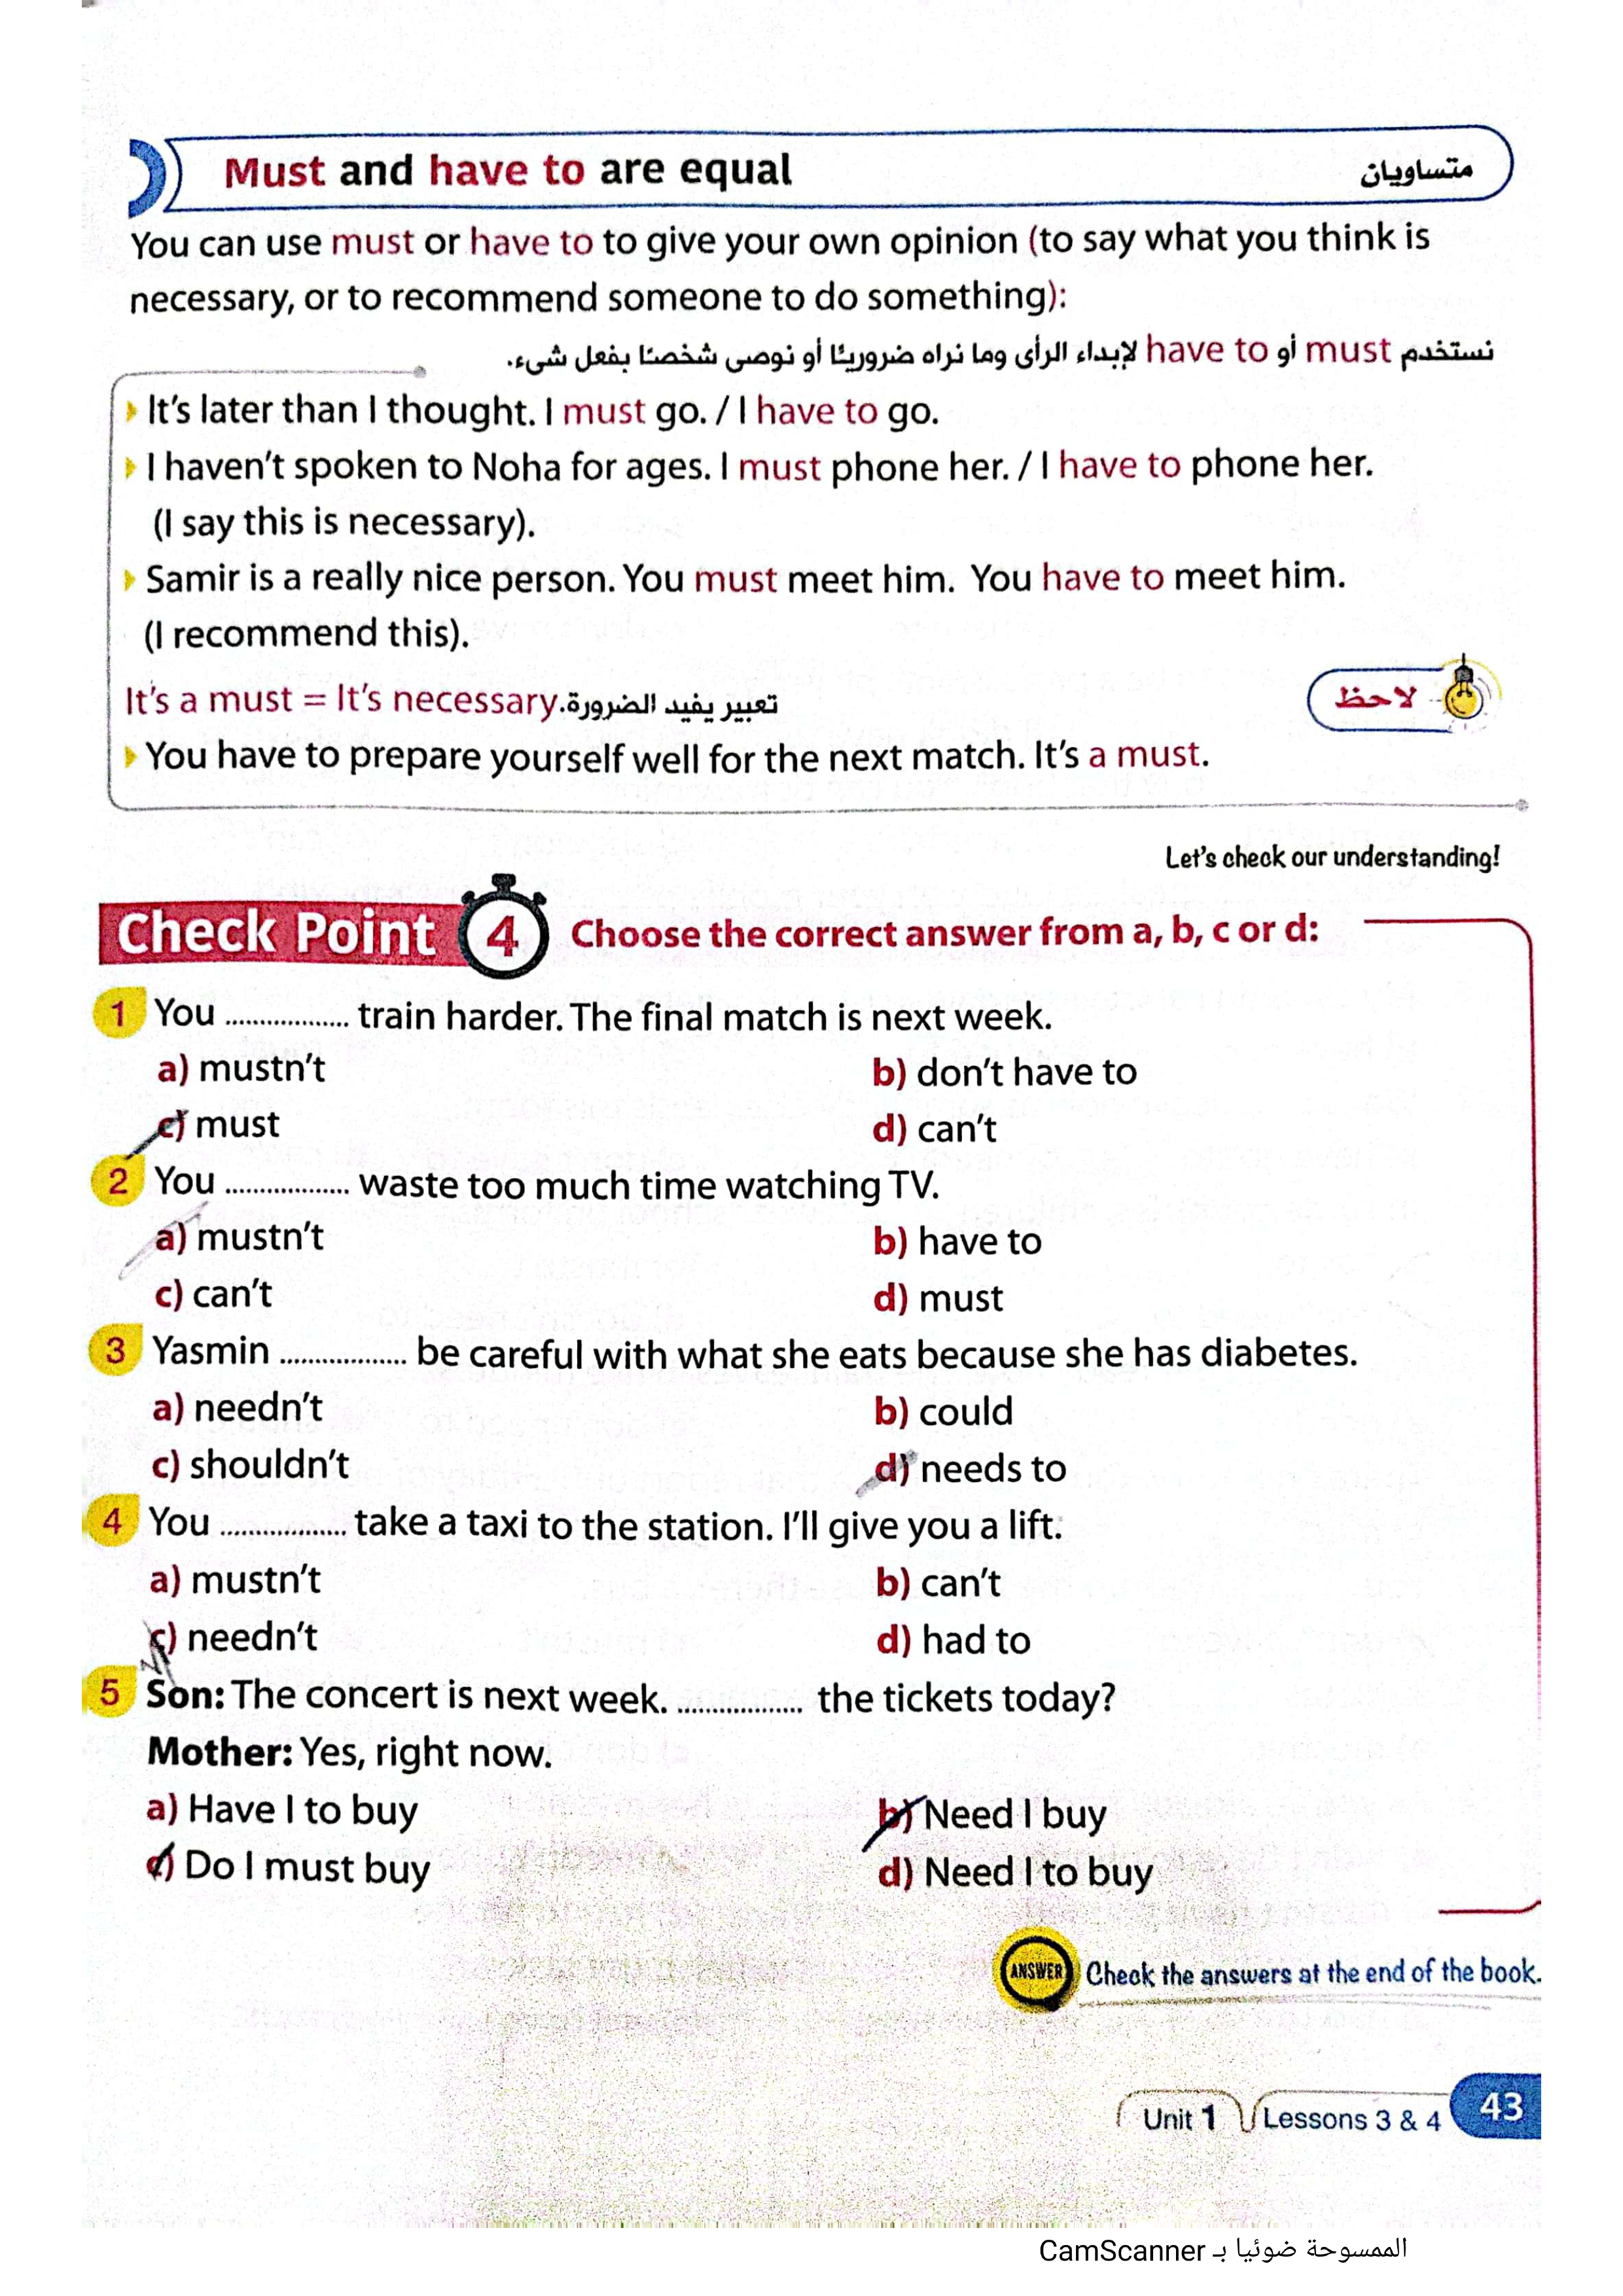 Must and have to are equal متساويان
You can use must or have to to give your own opinion (to say what you think is
necessary, or to recommend someone to do something):
نستخدم must أو have to لإبداء الرأى وما نراه ضروريًا أو نوصى شخصًا بفعل شىء.
It's later than I thought. I must go. / I have to go.
I haven't spoken to Noha for ages. I must phone her. / I have to phone her.
(I say this is necessary).
Samir is a really nice person. You must meet him. You have to meet him.
(I recommend this).
لاحظ
It's a must = It's necessary. تعبير يفيد الضرورة
You have to prepare yourself well for the next match. It's a must.
Let's check our understanding!
Check Point 4 Choose the correct answer from a, b, c or d:
1 You .................. train harder. The final match is next week.
a) mustn't b) don't have to
c) must d) can't
2 You .................. waste too much time watching TV.
a) mustn't b) have to
c) can't d) must
3 Yasmin .................. be careful with what she eats because she has diabetes.
a) needn't b) could
c) shouldn't d) needs to
4 You .................. take a taxi to the station. I'll give you a lift.
a) mustn't b) can't
c) needn't d) had to
5 Son: The concert is next week. .................. the tickets today?
Mother: Yes, right now.
a) Have I to buy b) Need I buy
c) Do I must buy d) Need I to buy
ANSWER Check the answers at the end of the book.
Unit 1 Lessons 3 & 4 43
الممسوحة ضوئيا بـ CamScanner